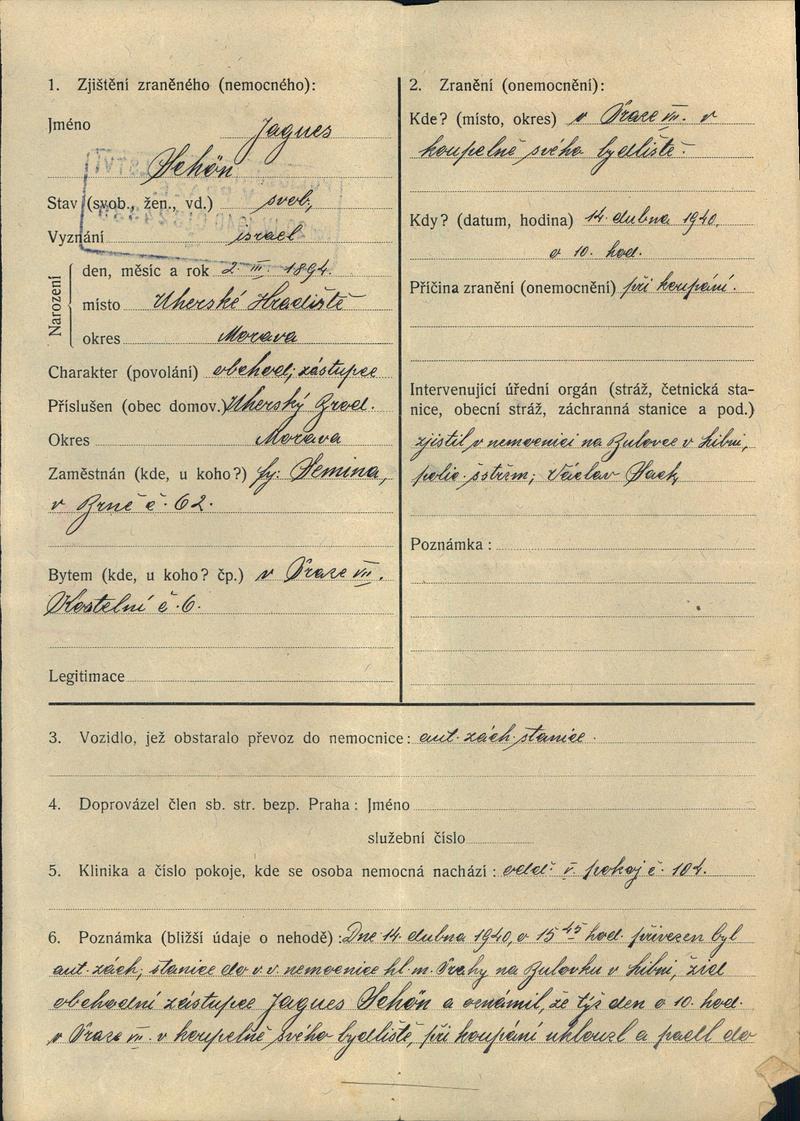 1. Zjištění zraněného (nemocného):
Jméno Jagues
Schön
Stav (svob., žen., vd.) svob,
Vyznání israel
Narození
den, měsíc a rok 2. III. 1894.
místo Uherské Hradiště
okres Morava
Charakter (povolání) obchod; zástupce
Příslušen (obec domov.) Uherský Brod.
Okres Morava
Zaměstnán (kde, u koho?) fy: Semina,
v Brně č. 62.
Bytem (kde, u koho? čp.) v Praze VII.
Kostelní č. 6.
Legitimace
2. Zranění (onemocnění):
Kde? (místo, okres) v Praze VII. v
koupelně svého bydliště.
Kdy? (datum, hodina) 14. dubna 1940,
o 10. hod.
Příčina zranění (onemocnění) při koupání.
Intervenující úřední orgán (stráž, četnická sta-
nice, obecní stráž, záchranná stanice a pod.)
zjistil v nemocnici na Bulovce v Libni,
polic. Václav
Poznámka :
3. Vozidlo, jež obstaralo převoz do nemocnice: aut. zách. stanice.
4. Doprovázel člen sb. str. bezp. Praha : Jméno
služební číslo
5. Klinika a číslo pokoje, kde se osoba nemocná nachází : odd. V. pokoj č. 104.
6. Poznámka (bližší údaje o nehodě) : Dne 14. dubna 1940, o 15 45 hod. přivezen byl
aut. zách; stanice do v. v. nemocnice hl. m. Prahy na Bulovku v Libni, žid
obchodní zástupce Jagues Schön a oznámil, že týž den o 10. hod.
v Praze VII. v koupelně svého bydliště, při koupání uklouzl a padl do